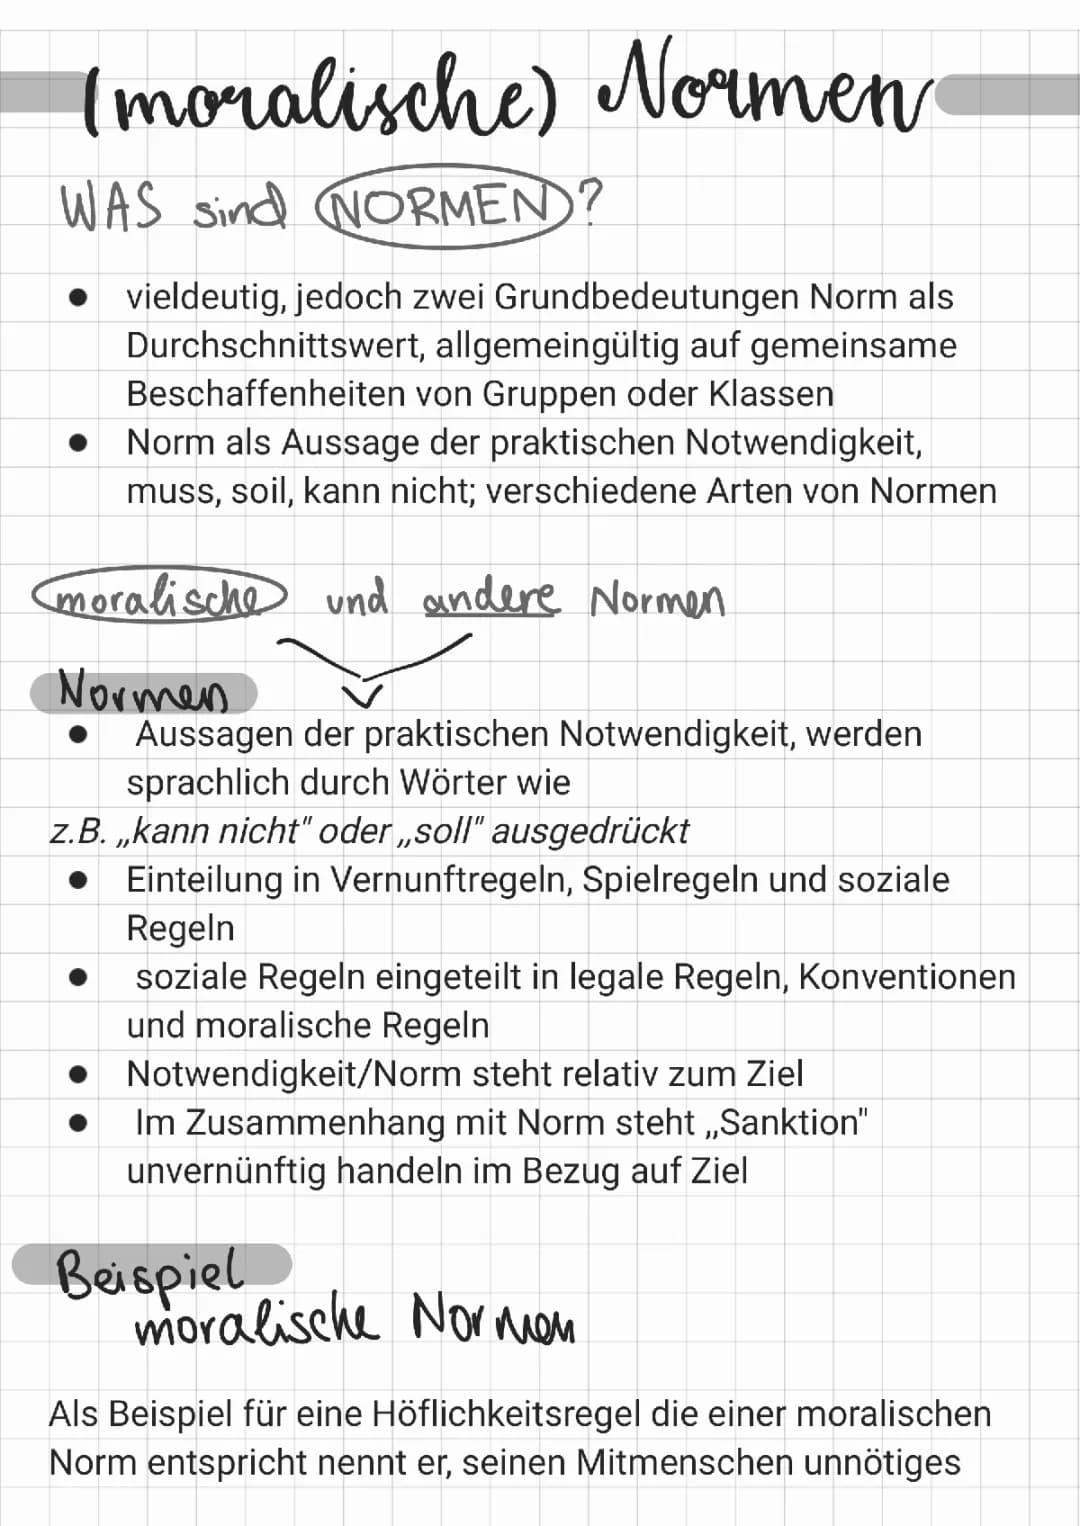 (moralische) Normen
WAS sind NORMEN?
● vieldeutig, jedoch zwei Grundbedeutungen Norm als
Durchschnittswert, allgemeingültig auf gemeinsame
Beschaffenheiten von Gruppen oder Klassen
● Norm als Aussage der praktischen Notwendigkeit,
muss, soil, kann nicht; verschiedene Arten von Normen
moralische und andere Normen
Normen
● Aussagen der praktischen Notwendigkeit, werden
sprachlich durch Wörter wie
z.B. „kann nicht" oder „soll" ausgedrückt
● Einteilung in Vernunftregeln, Spielregeln und soziale
Regeln
● soziale Regeln eingeteilt in legale Regeln, Konventionen
und moralische Regeln
● Notwendigkeit/Norm steht relativ zum Ziel
● Im Zusammenhang mit Norm steht „Sanktion"
unvernünftig handeln im Bezug auf Ziel
Beispiel
moralische Normen
Als Beispiel für eine Höflichkeitsregel die einer moralischen
Norm entspricht nennt er, seinen Mitmenschen unnötiges